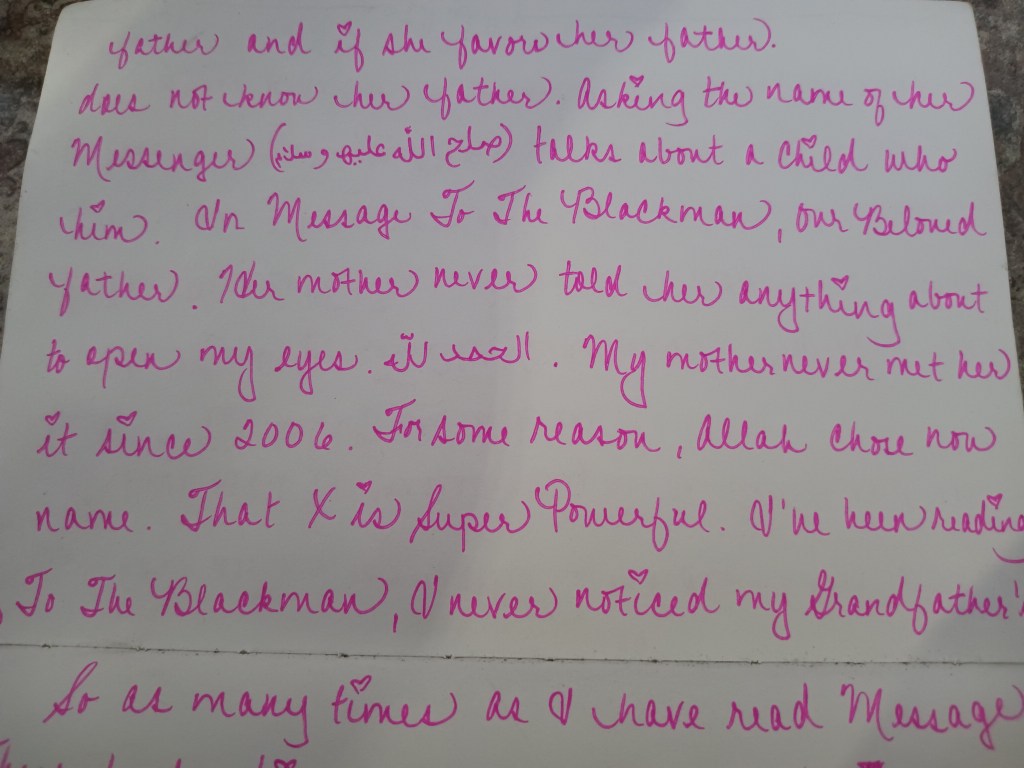 father and if she favors her father.
does not know her father. Asking the name of her
Messenger (صلى الله عليه وسلم) talks about a child who
him. In Message To The Blackman, our Beloved
father. Her mother never told her anything about
to open my eyes. الحمد لله. My mother never met her
it since 2006. For some reason, Allah chose now
name. That X is Super Powerful. I've been reading
To The Blackman, I never noticed my Grandfather's
So as many times as I have read Message